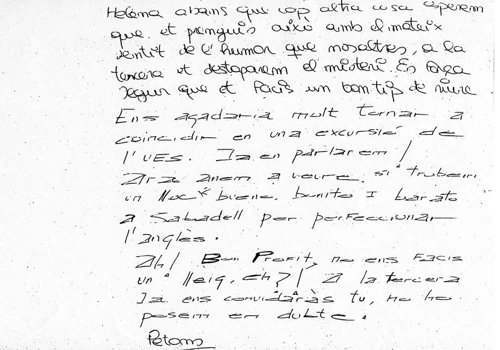 Helena abans que cap altra cosa esperem
que et prenguis això amb el mateix
sentit de l'humor que nosaltres, a la
tercera et destaparem el misteri. Es força
segur que et facis un bon tip de riure
Ens agradaria molt tornar a
coincidir en una excursió de
l'UES. Ja en parlarem!
Ara anem a veure si trobem
un lloc* bueno, bonito I barato
a Sabadell per perfeccionar
l'anglès.
Ah! Bon Profit, no ens facis
un lleig, eh?! A la tercera
Ja ens convidaràs tu, no ho
posem en dubte.
Petons